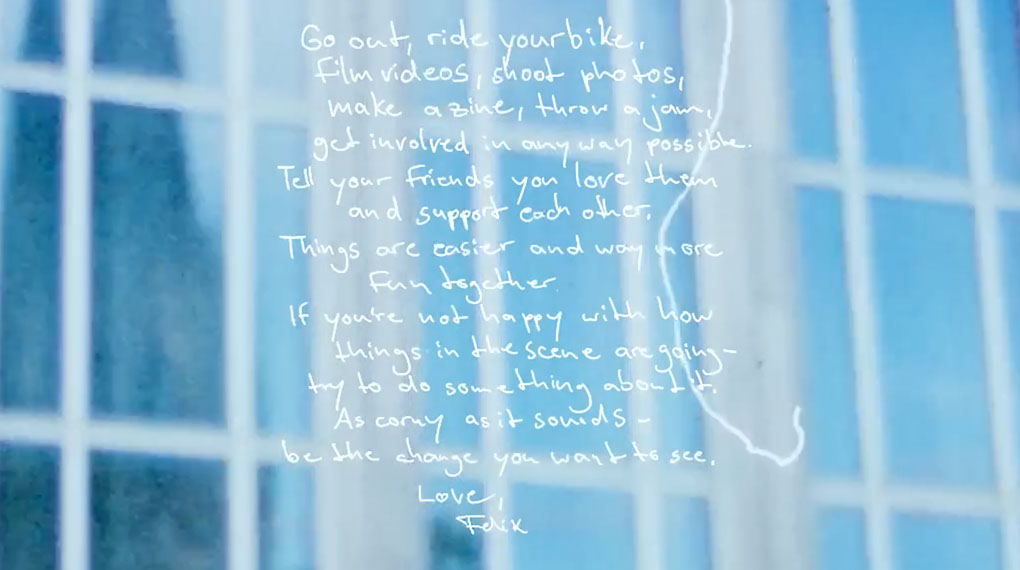 Go out, ride your bike,
film videos, shoot photos,
make a zine, throw a jam,
get involved in any way possible.
Tell your friends you love them
and support each other.
Things are easier and way more
fun together.
If you're not happy with how
things in the scene are going-
try to do something about it.
As corny as it sounds -
be the change you want to see.
Love,
Felix